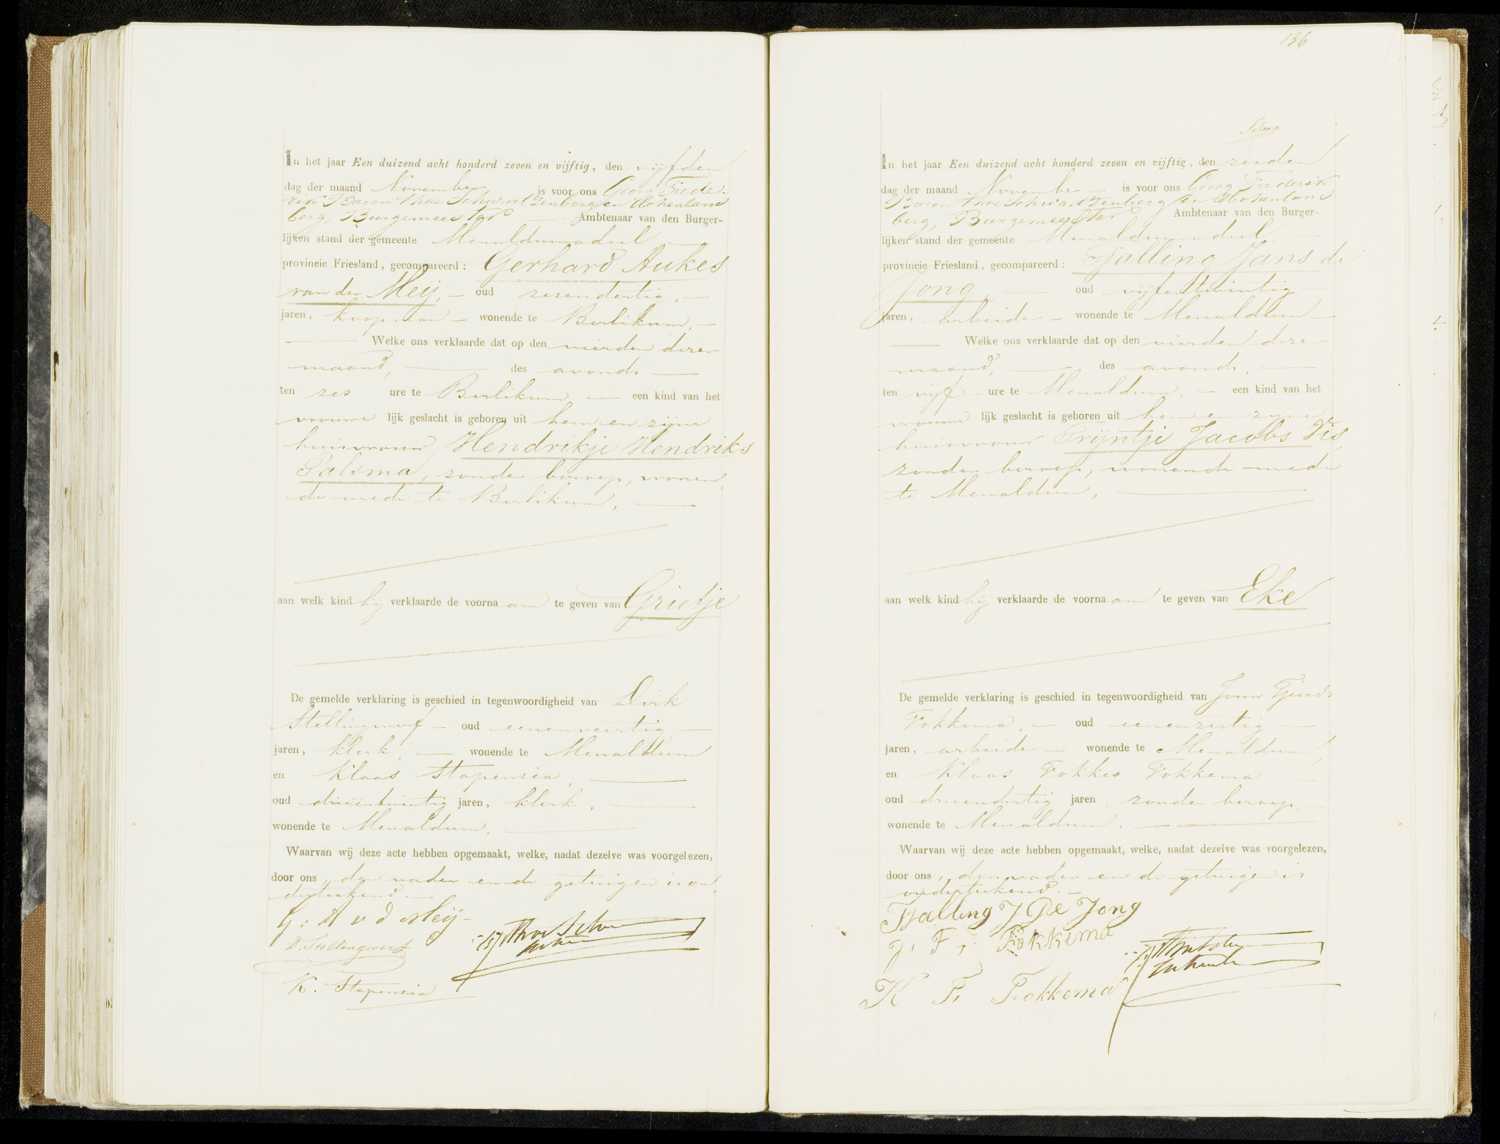 In het jaar Een duizend acht honderd zeven en vijftig, den vijfden
dag der maand November is voor ons Georg Frede-
rik Baron thoe Schwartzenberg en Hohenlans-
berg, Burgemeester Ambtenaar van den Burger-
lijken stand der gemeente Menaldumadeel
provincie Friesland, gecompareerd: Gerhard Aukes
van der Meij, oud zesendertig,
jaren, koopman wonende te Berlikum,
Welke ons verklaarde dat op den vierden dezer
maand, des avonds
ten zes ure te Berlikum, een kind van het
vrouwe lijk geslacht is geboren uit hem en zijne
huisvrouw Hendrikje Hendriks
Salsma, zonder beroep, wonen-
de mede te Berlikum,
aan welk kind hij verklaarde de voorna am te geven van Grietje
De gemelde verklaring is geschied in tegenwoordigheid van Dirk
Stellingwerf oud eenenveertig
jaren, klerk, wonende te Menaldum
en Klaas Stapensea,
oud drieentwintig jaren, klerk,
wonende te Menaldum,
Waarvan wij deze acte hebben opgemaakt, welke, nadat dezelve was voorgelezen,
door ons, den vader en de getuigen is on-
derteekend.
G: A v d Meij
D. Stellingwerf
K. Stapensea
186
In het jaar Een duizend acht honderd zeven en vijftig, den zesden
dag der maand November is voor ons Georg Frederik
Baron thoe Schwartzenberg en Hohenlans-
berg, Burgemeester Ambtenaar van den Burger-
lijken stand der gemeente Menaldumadeel
provincie Friesland, gecompareerd: Tjalling Jans de
Jong, oud vijfentwintig
jaren, arbeider wonende te Menaldum
Welke ons verklaarde dat op den vierden dezer
maand, des avonds,
ten vijf ure te Menaldum, een kind van het
vrouwe lijk geslacht is geboren uit hem en zijne
huisvrouw Trijntje Jacobs Vis,
zonder beroep, wonende mede
te Menaldum,
aan welk kind hij verklaarde de voorna am te geven van Eke
De gemelde verklaring is geschied in tegenwoordigheid van
Fokkema, oud eenenzestig
jaren, arbeider wonende te Menaldum,
en Klaas Fokkes Fokkema
oud drieendertig jaren zonder beroep,
wonende te Menaldum.
Waarvan wij deze acte hebben opgemaakt, welke, nadat dezelve was voorgelezen,
door ons, den vader en de getuigen is
onderteekend.
Tjalling J De Jong
J. F; Fokkema
K F. Fokkema